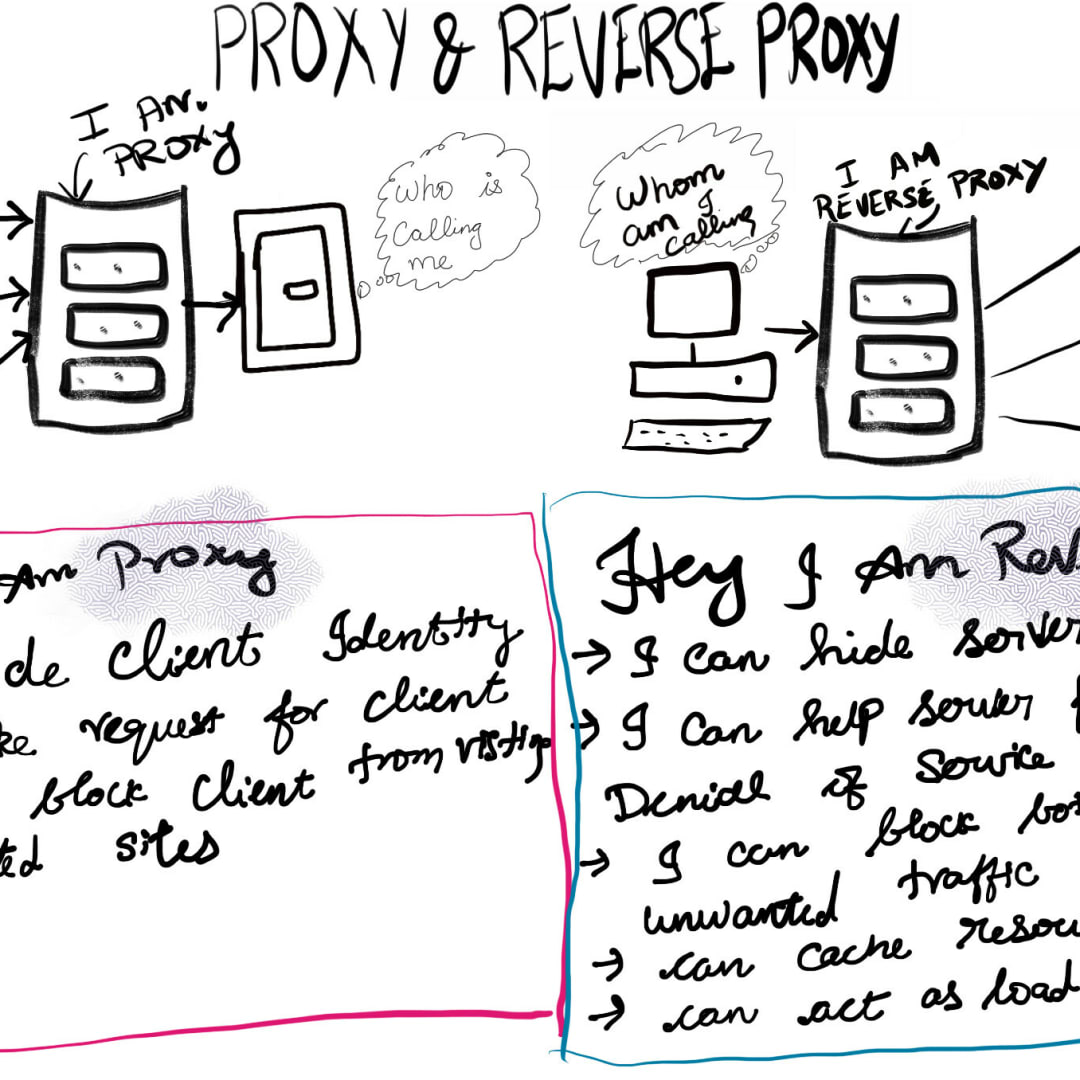 PROXY & REVERSE PROXY
I AM
PROXY
Who is
calling
me
Whom
am I
calling
I AM
REVERSE PROXY
Am Proxy
de client Identity
ke request for client
block client from visiting
ted sites
Hey I Am Rev
→ I can hide server
→ I can help server f
Denial of Service
→ I can block bo
unwanted traffic
→ can cache resou
→ can act as load